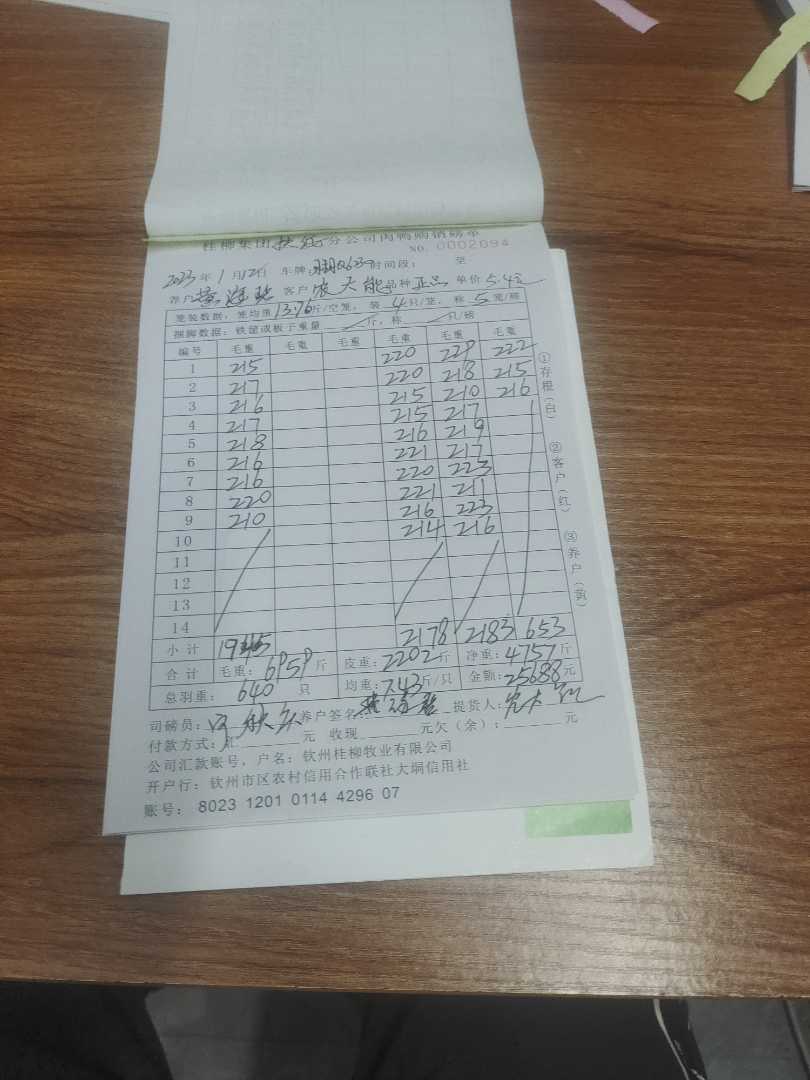 桂柳集团扶绥分公司肉鸭购销磅单
NO. 0002094
2023年1月12日 车牌: 时间段: 至
养户 客户 农天能 品种 正品 单价 5.4元
笼装数据, 笼均重 13.76斤/空笼, 装 4只/笼, 称 5笼/磅
捆脚数据: 铁筐或板子重量 斤, 称 只/磅
编号 毛重 毛重 毛重 毛重 毛重 毛重
1 215 220 229 222
2 217 220 218 215
3 216 215 210 216
4 217 215 217
5 218 216 219
6 216 221 217
7 216 220 223
8 220 221 211
9 210 216 223
10 214 216
11
12
13
14
小计 1945 2178 2183 653
合计 毛重: 6959斤 皮重: 2202斤 净重: 4757斤
总羽重: 640 只 均重: 7.43斤/只 金额: 25688元
司磅员: 养户签名: 提货人:
付款方式: 汇 元 收现 元欠(余): 元
公司汇款账号, 户名: 钦州桂柳牧业有限公司
开户行: 钦州市区农村信用合作联社大垌信用社
账号: 8023 1201 0114 4296 07
①存根(白)
②客户(红)
③养户(黄)